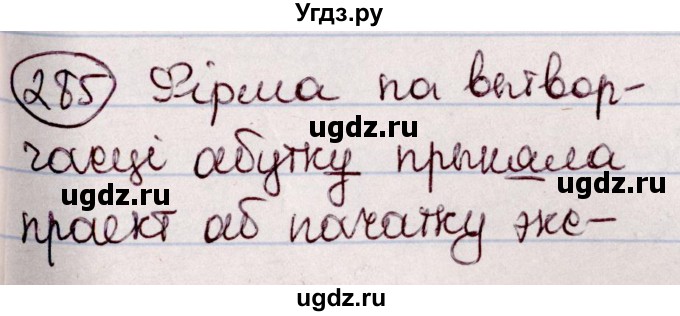 Угдз.ру
285 Фірма па вытвор-
часці абутку прыняла
праект аб пачатку экс-
ugdz.ru
ugdz.ru ugdz.ru
ugdz.ru ugdz.ru
ugdz.ru